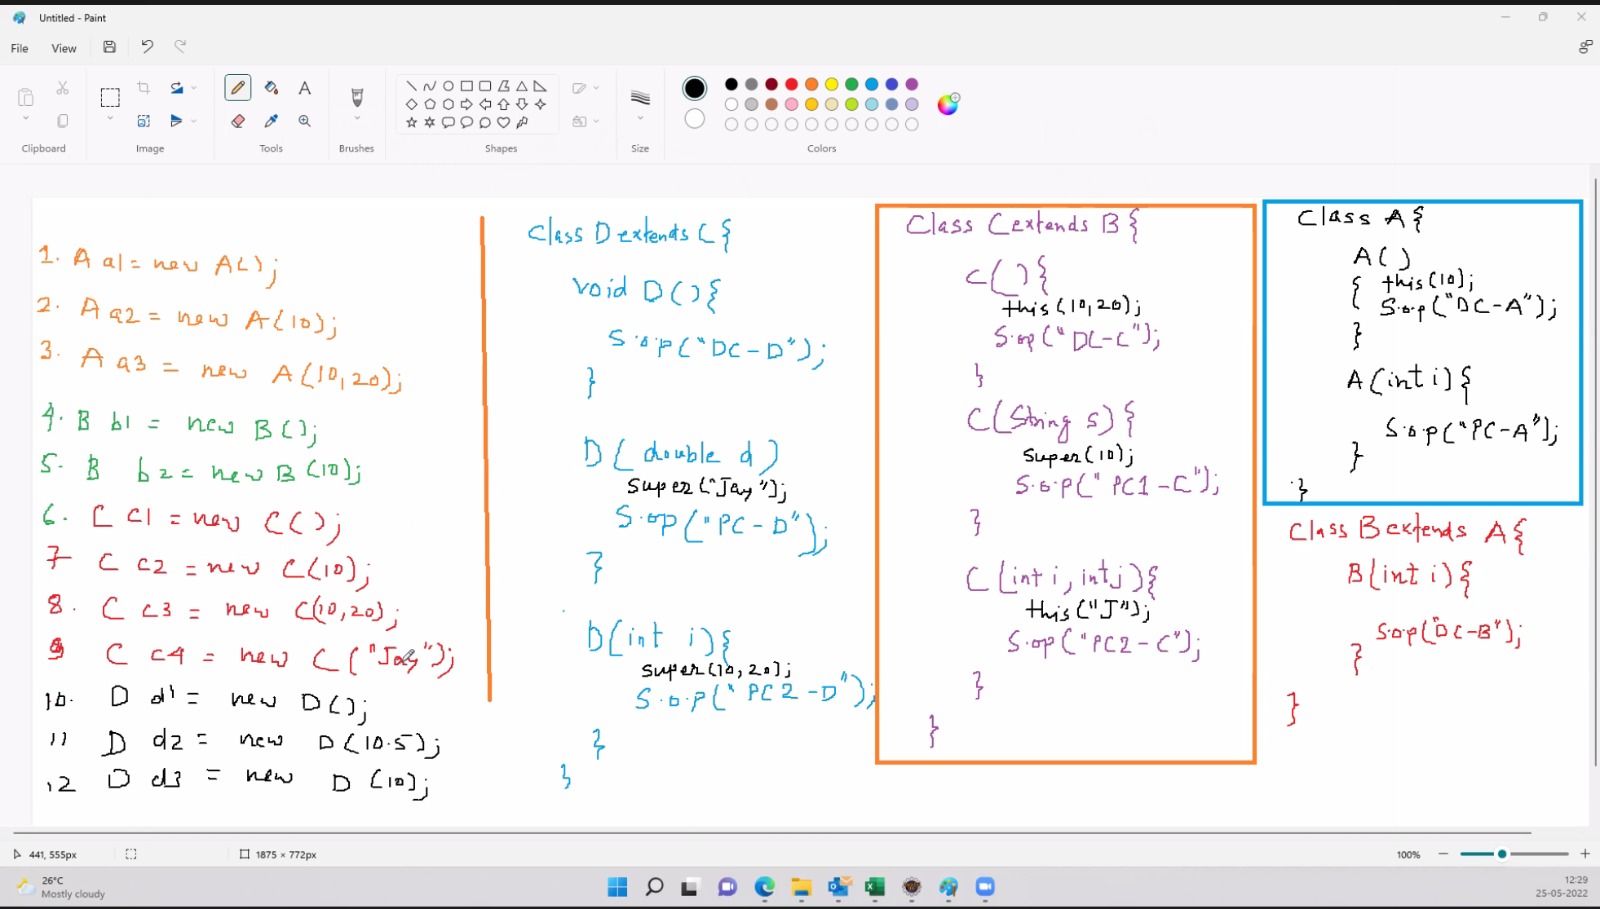 Untitled - Paint
File
View
Clipboard
Image
Tools
Brushes
Shapes
Size
Colors
1. A a1 = new A();
2. A a2 = new A(10);
3. A a3 = new A(10,20);
4. B b1 = new B();
5. B b2 = new B(10);
6. C c1 = new C();
7 C c2 = new C(10);
8. C c3 = new C(10,20);
9 C c4 = new C("Jay");
10. D d1 = new D();
11 D d2 = new D(10.5);
12 D d3 = new D(10);
Class D extends C{
void D(){
S.o.p("DC-D");
}
D(double d)
super("Jay");
S.op("PC-D");
}
D(int i){
super(10,20);
S.o.p("PC2-D");
}
}
Class C extends B{
C(){
this(10,20);
S.op("DC-C");
}
C(String s){
super(10);
S.o.p("PC1-C");
}
C(int i, int j){
this("J");
S.op("PC2-C");
}
}
Class A{
A()
{ this(10);
S.o.p("DC-A");
}
A(int i){
S.o.p("PC-A");
}
}
Class B extends A{
B(int i){
S.o.p("DC-B");
}
}
441, 555px
1875 × 772px
100%
26°C
Mostly cloudy
12:29
25-05-2022